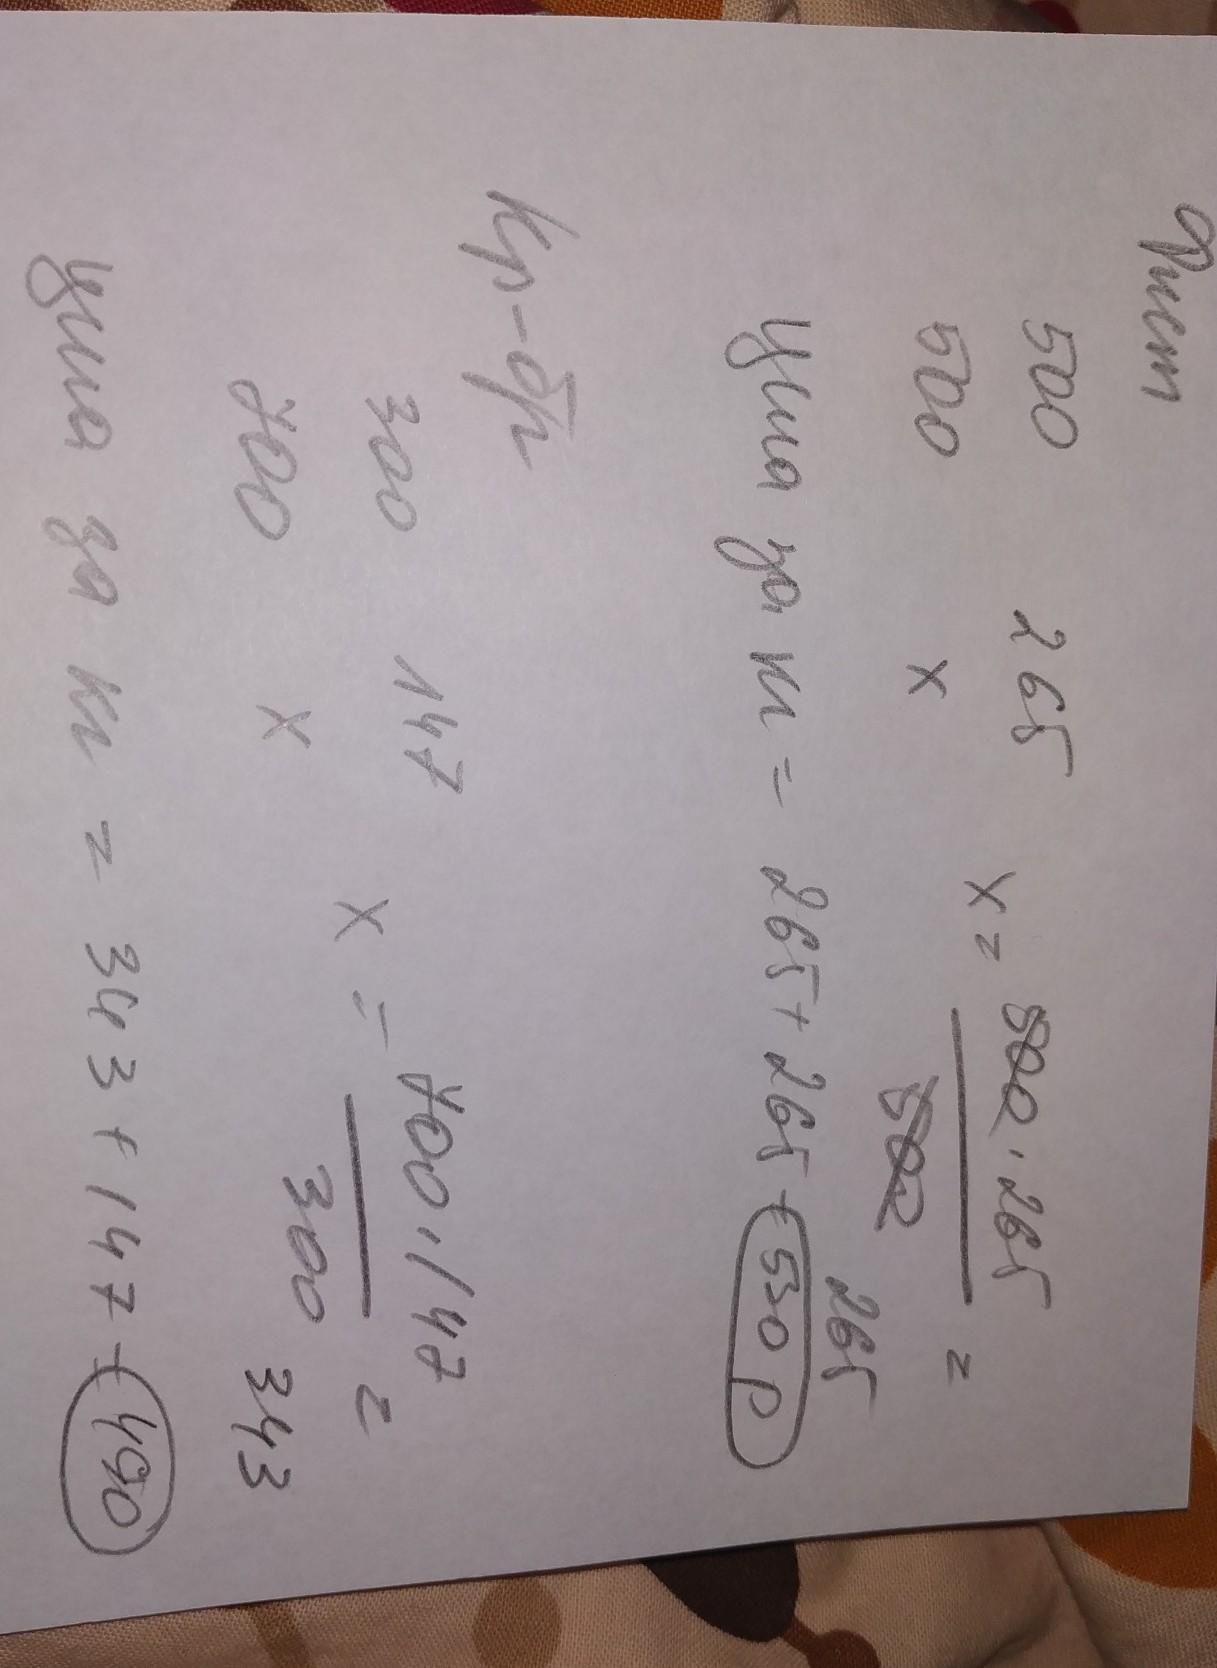 Фист
500 265 x = 500 · 265 =
500 x 500 265
Цена за кг = 265 + 265 = 530 р
300 147 x = 700 · 147 =
700 x 300 343
Цена за кг = 343 + 147 = 490